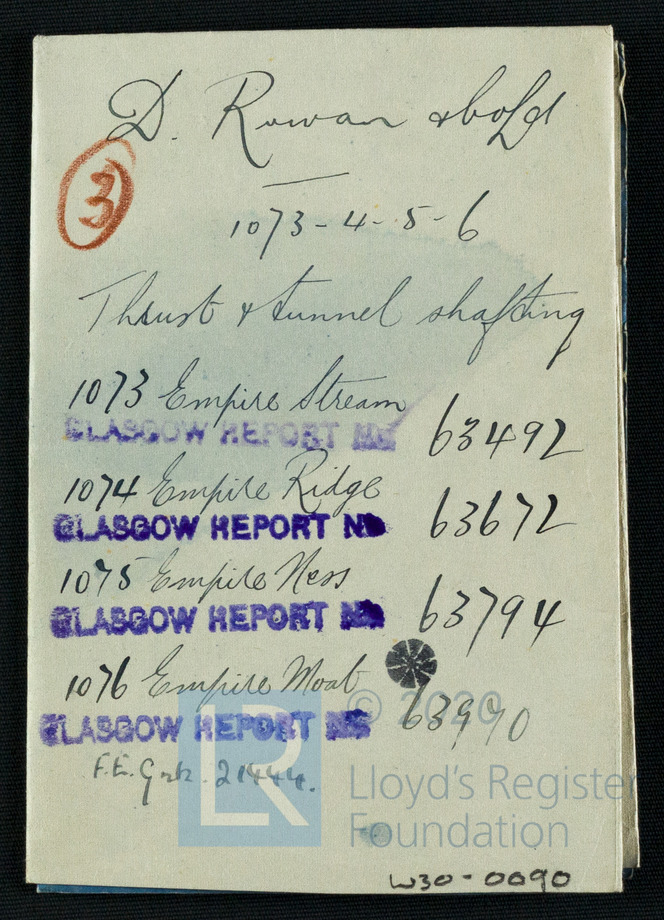 D. Rowan & Co Ld
3
1073-4-5-6
Thrust & tunnel shafting
1073 Empire Stream
GLASGOW REPORT No 63492
1074 Empire Ridge
GLASGOW REPORT No 63672
1075 Empire Ness
GLASGOW REPORT No 63794
1076 Empire Moat
GLASGOW REPORT No 63970
F.E. Grk. 21444.
© 2020
LR
Lloyd's Register
Foundation
W30-0090